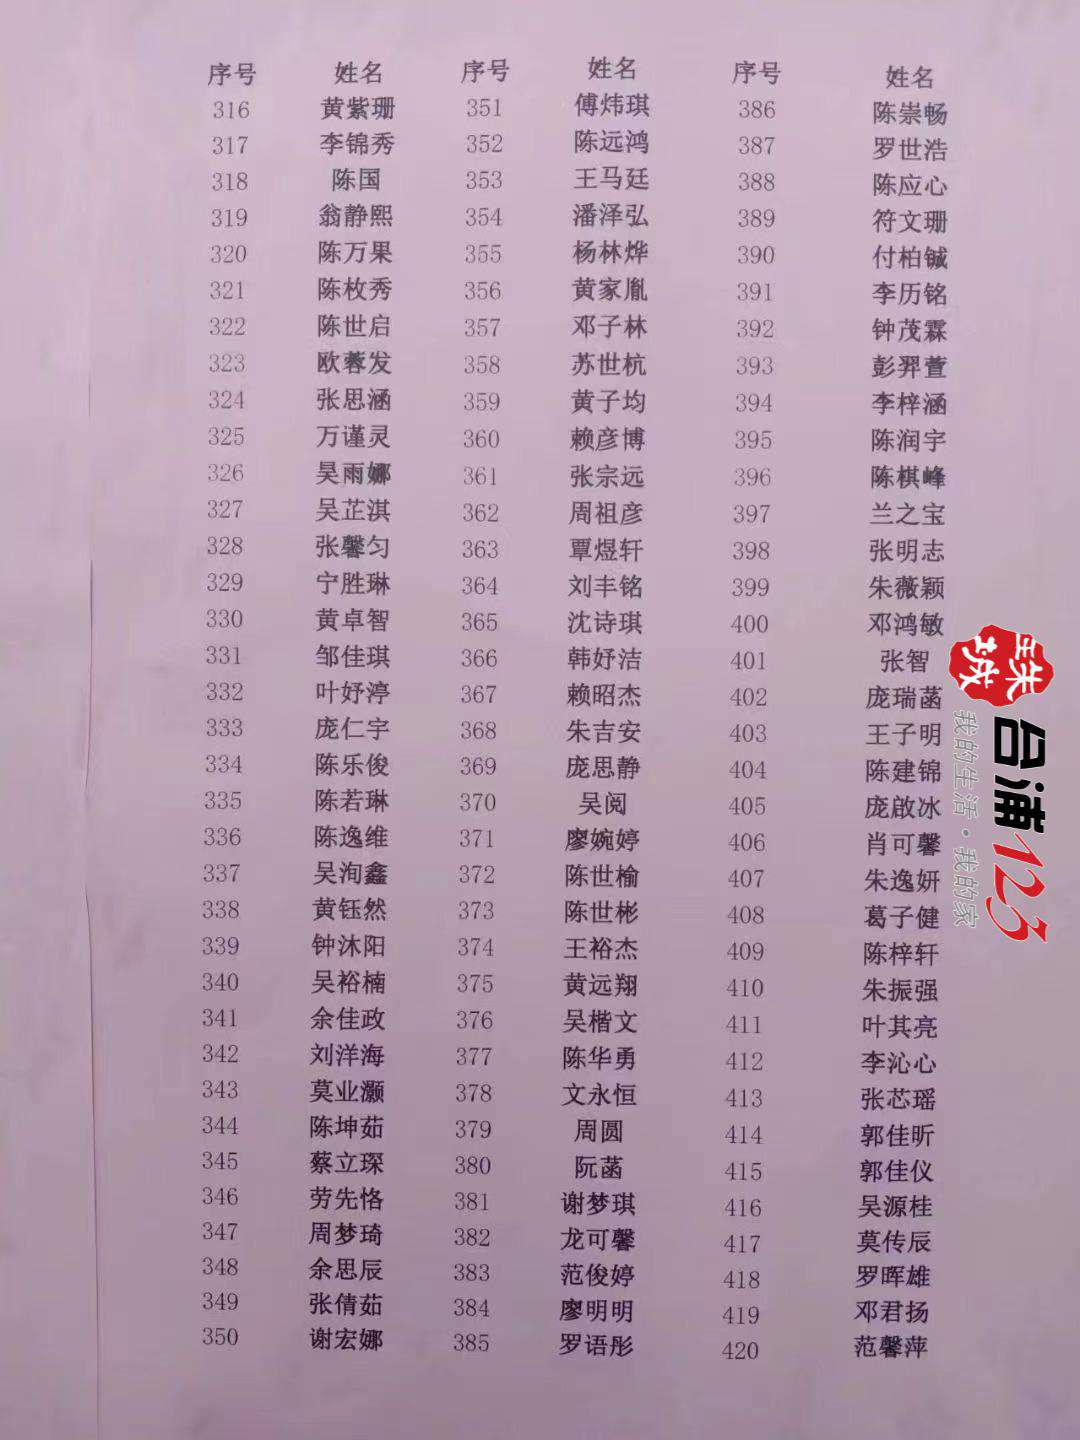 序号 姓名 序号 姓名 序号 姓名
316 黄紫珊 351 傅炜琪 386 陈崇畅
317 李锦秀 352 陈远鸿 387 罗世浩
318 陈国 353 王马廷 388 陈应心
319 翁静熙 354 潘泽弘 389 符文珊
320 陈万果 355 杨林烨 390 付柏铖
321 陈枚秀 356 黄家胤 391 李历铭
322 陈世启 357 邓子林 392 钟茂霖
323 欧蓉发 358 苏世杭 393 彭羿萱
324 张思涵 359 黄子均 394 李梓涵
325 万谨灵 360 赖彦博 395 陈润宇
326 吴雨娜 361 张宗远 396 陈棋峰
327 吴芷淇 362 周祖彦 397 兰之宝
328 张馨匀 363 覃煜轩 398 张明志
329 宁胜琳 364 刘丰铭 399 朱薇颖
330 黄卓智 365 沈诗琪 400 邓鸿敏
331 邹佳琪 366 韩妤洁 401 张智
332 叶妤渟 367 赖昭杰 402 庞瑞菡
333 庞仁宇 368 朱吉安 403 王子明
334 陈乐俊 369 庞思静 404 陈建锦
335 陈若琳 370 吴阅 405 庞啟冰
336 陈逸维 371 廖婉婷 406 肖可馨
337 吴洵鑫 372 陈世榆 407 朱逸妍
338 黄钰然 373 陈世彬 408 葛子健
339 钟沐阳 374 王裕杰 409 陈梓轩
340 吴裕楠 375 黄远翔 410 朱振强
341 余佳政 376 吴楷文 411 叶其亮
342 刘洋海 377 陈华勇 412 李沁心
343 莫业灏 378 文永恒 413 张芯瑶
344 陈坤茹 379 周圆 414 郭佳昕
345 蔡立琛 380 阮菡 415 郭佳仪
346 劳先恪 381 谢梦琪 416 吴源桂
347 周梦琦 382 龙可馨 417 莫传辰
348 余思辰 383 范俊婷 418 罗晖雄
349 张倩茹 384 廖明明 419 邓君扬
350 谢宏娜 385 罗语彤 420 范馨萍
珠城
合浦123
我的生活·我的家